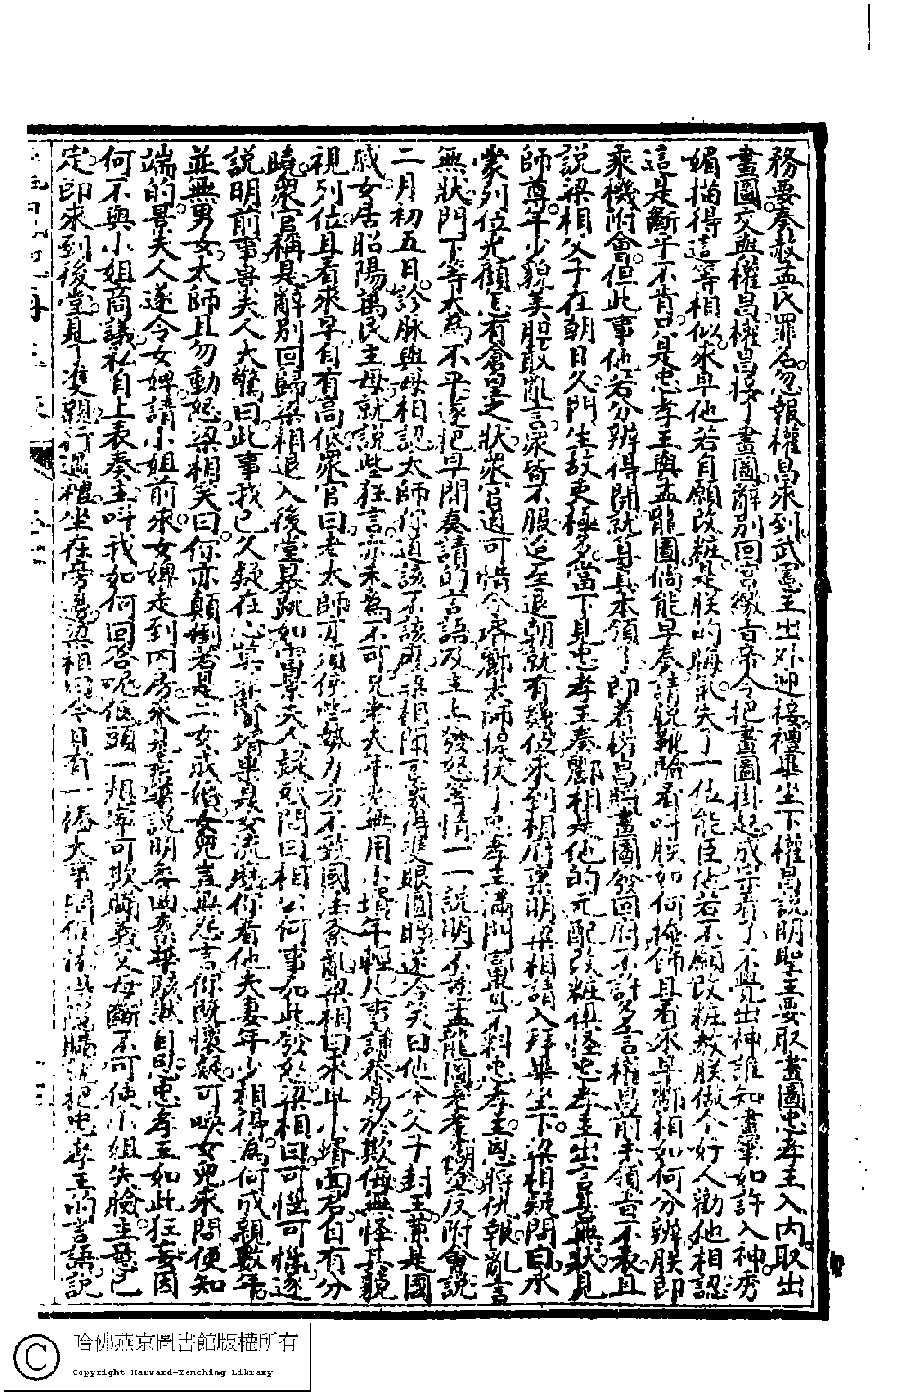 務要奏赦孟氏罪名勿報權昌來到武憲王出外迎接禮畢坐下權昌說明聖主要取畫圖忠孝王入內取出
畫圖交與權昌權昌接了畫圖辭別回宮繳旨帝令把畫圖掛起成宗看了不覺出神誰知畫筆如許入神秀
媚描得這等相似來早他若自願改粧是朕的晦氣失了一位能臣倘若不願改粧教朕做个好人勸他相認
這是斷乎不肯只是忠孝王與孟龍圖倘能早奏請脫靴驗看叫朕如何掩飾且看來早酈相如何分辨朕即
乘機附會但此事他若分辨得開就算真本領了即着權昌將畫圖發回府不許多言權昌前去領旨不表且
說梁相父子在朝日久門生故吏極多當下見忠孝王奏酈相是他的元配改粧俱怪忠孝王出言無狀見
師尊年少貌美胆敢亂言眾皆不服迨至退朝就有幾位來到相府稟明梁相請入拜畢坐下梁相疑問曰承
蒙列位光顧忽有倉皇之狀眾官道可惜令婿酈老師提拔了忠孝王滿門富貴不料忠孝王恩將仇報亂言
無狀門下等大為不平遂把早間奏請的言語及主上發怒等情一一說明不該孟龍圖老者糊塗反附會說
二月初五日診脈與母相認太師你道該不該梁相聞言氣得雙眼圓睜遂冷笑曰他令人千封王第是國
戚女居昭陽萬民主母就說些狂言亦未為不可老夫年老無用小壻年輕凡事諸務易於欺侮無怪其藐
視列位且看來早自有高低眾官曰老太師亦須使些勢力方不致國法紊亂梁相曰不此小婿面君自有分
曉眾官稱是辭別回歸梁相退入後堂暴跳如雷景夫人疑或問曰相公何事如此發怒梁相曰可惱可惱遂
說明前事景夫人大驚曰此事我已久疑在心莫非賢壻果是女流麼你看他夫妻年少相得為何成親數年
並無男女太師且勿動怒梁相笑曰你亦顛倒若是二女成婚女兒豈無怨言你既懷疑可喚女兒來問便知
端的景夫人遂令女婢請小姐前來女婢走到內房來見素華說明委曲素華駭然自思忠孝王如此狂妄因
何不與小姐商議私自上表奏主叫我如何回答呢低頭一想寧可欺瞞義父母斷不可使小姐失臉主意已
定即來到後堂見了雙親行過禮坐在旁邊梁相曰今日有一樁大事問你遂把忠孝王的言語說